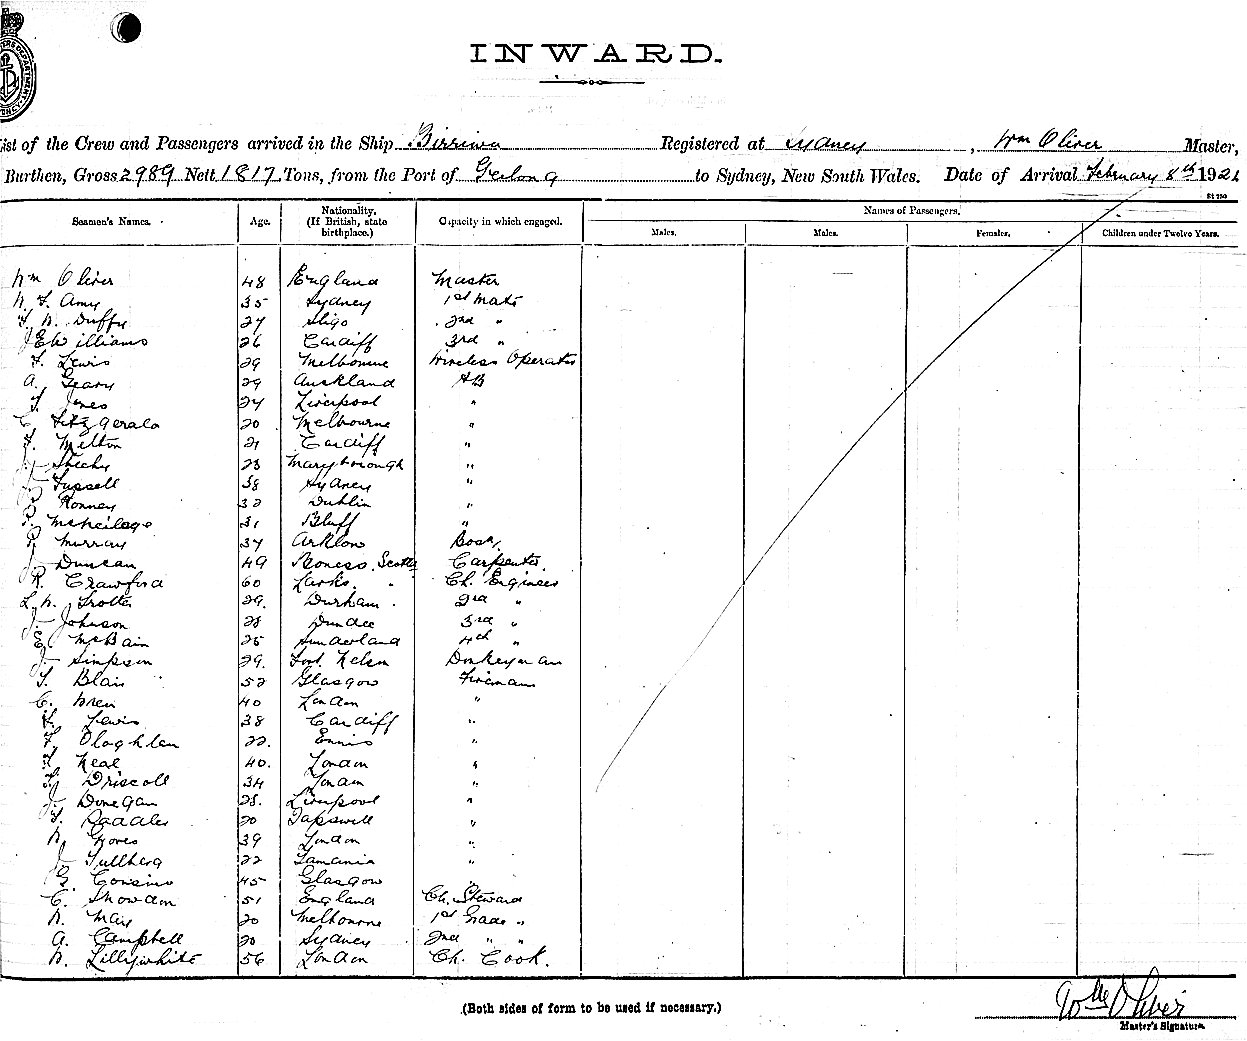 INWARD.
List of the Crew and Passengers arrived in the Ship Birriwa Registered at Sydney, Wm Oliver Master,
Burthen, Gross 2989 Nett 1817 Tons, from the Port of Geelong to Sydney, New South Wales. Date of Arrival February 8th 1921
Seamen's Names. Age. Nationality. (If British, state birthplace.) Capacity in which engaged. Names of Passengers.
Males. Males. Females. Children under Twelve Years.
Wm Oliver 48 England Master
Amy 35 Sydney 1st Mate
Duffy 27 Sligo 2nd "
J E Williams 26 Cardiff 3rd "
Lewis 29 Melbourne Wireless Operator
A. Geary 29 Auckland AB
Jones 27 Liverpool "
C. Fitzgerald 20 Melbourne "
Melton 21 Cardiff "
J. Sheehy 23 Maryborough "
Fussell 38 Sydney "
Ronney 32 Dublin "
McNeilage 31 Bluff "
Murray 37 Arklow Bosn.
J. Duncan 49 Boness. Scotld Carpenter.
R. Crawford 60 Larks. " Ch. Engineer
Trotter 29. Durham. 2nd "
J. Johnson 28 Dundee 3rd "
E. McBain 25 Sunderland 4th "
J. Simpson 29. Nelson Donkeyman
Blair 52 Glasgow Fireman
C. Wren 40 London "
Lewis 38 Cardiff "
Ologhlen 22. Ennis "
Neal 40. London "
Driscoll 34 London "
J. Donegan 28. Liverpool "
20 "
39 London "
J. Tullberg 22 Tamania "
G. Cousins 45 Glasgow "
C. Snowdon 51 England Ch. Steward
May 20 Melbourne 1st Grade "
A. Campbell 20 Sydney 2nd " "
W. Lillywhite 56 London Ch. Cook.
(Both sides of form to be used if necessary.)
Wm Oliver
Master's Signature.